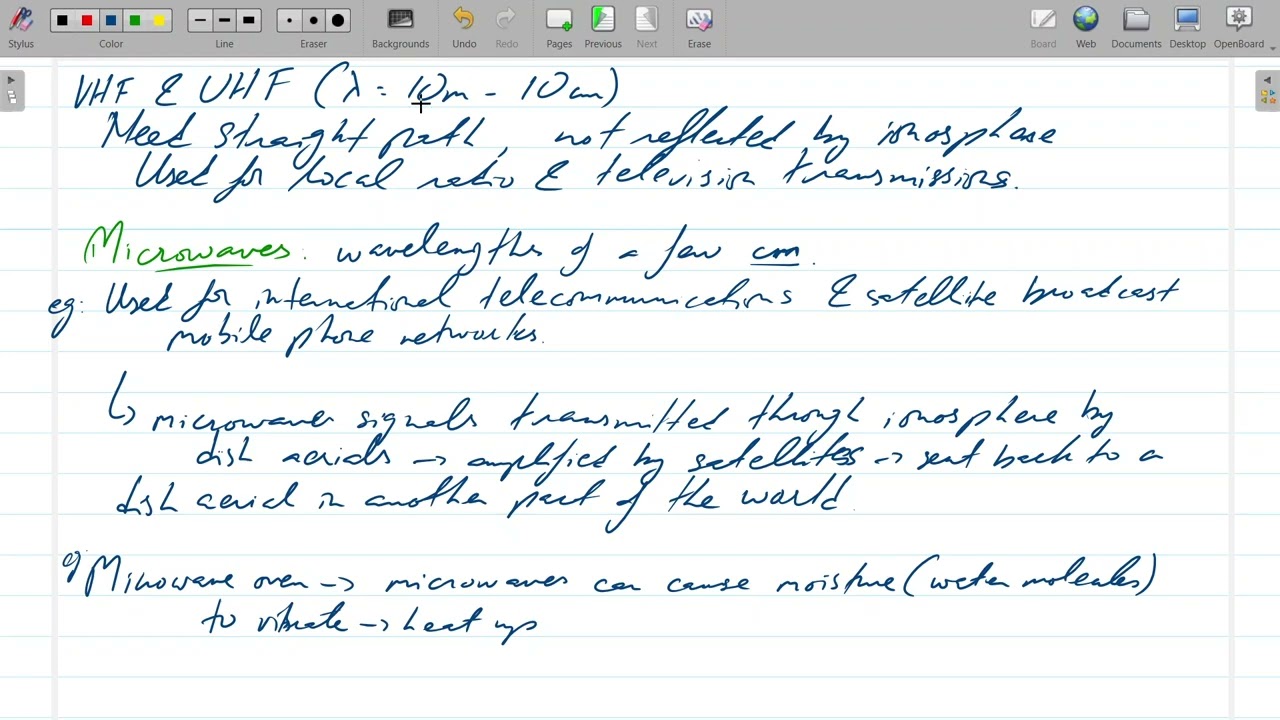 Stylus
Color
Line
Eraser
Backgrounds
Undo
Redo
Pages
Previous
Next
Erase
Board
Web
Documents
Desktop
OpenBoard
VHF & UHF (λ = 10m - 10cm)
Need straight path, not reflected by ionosphere
Used for local radio & television transmissions.
Microwaves: wavelengths of a few cm.
eg: Used for international telecommunications & satellite broadcast
mobile phone networks.
↳ microwave signals transmitted through ionosphere by
dish aerials → amplified by satellites → sent back to a
dish aerial in another part of the world.
Microwave oven → microwaves can cause moisture (water molecules)
to vibrate → heat up